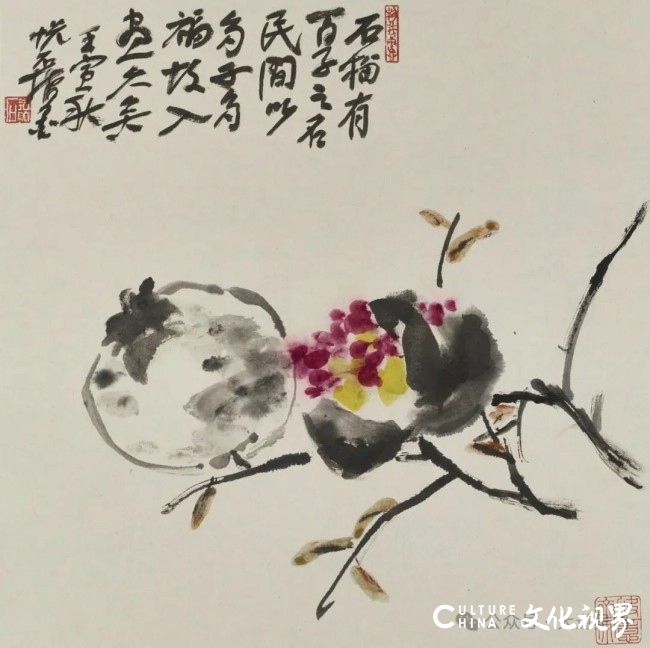 石榴有
百子之名
民間以
多子多
福故入
畫久矣
壬寅秋
CULTURE
CHINA
文化视界
公众